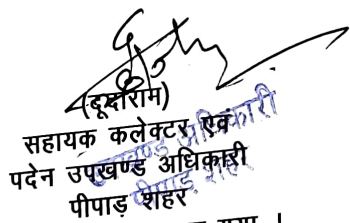 (डूंगाराम)
सहायक कलेक्टर एवं
पदेन उपखण्ड अधिकारी
पीपाड़ शहर
उपखण्ड अधिकारी
पीपाड़ शहर
गया ।